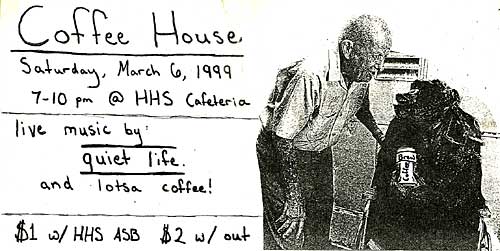 Coffee House
Saturday, March 6, 1999
7-10 pm @ HHS Cafeteria
live music by:
quiet life.
and lotsa coffee!
$1 w/ HHS ASB $2 w/ out
Coffee